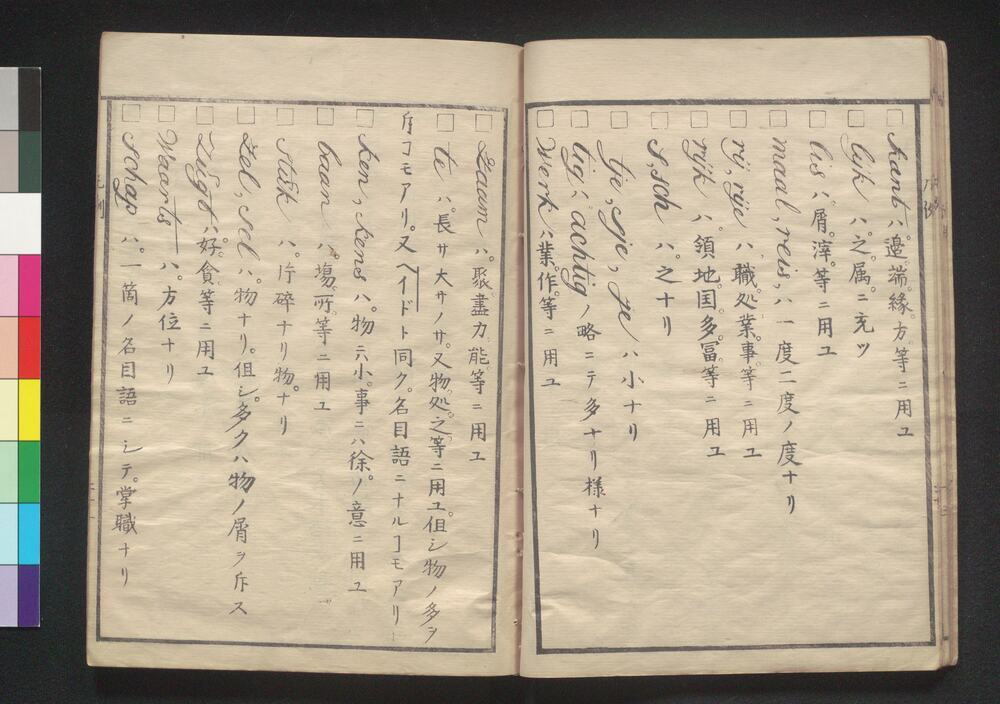 □kant ハ。邊。端。緣。方等ニ用ユ
□lijk ハ。之。属。ニ充ツ
□lis ハ。屑。滓。等ニ用ユ
□maal, reis, ハ一度二度ノ度ナリ
□rij, rije ハ。職。処。業。事。等ニ用ユ
□rijk ハ。領。地。国。多。冨。等ニ用ユ
□s, sch ハ。之ナリ
□tje, sje, je ハ小ナリ
□tig ハ achtig ノ略ニテ多ナリ様ナリ
□werk ハ。業。作。等ニ用ユ
□zaam ハ。聚。盡。力。能。等ニ用ユ
□te ハ。長サ大サノサ。又物。処。之。等ニ用ユ。但シ物ノ多ヲ
斥コモアリ。又ヘイドト同ク。名目語ニナルコモアリ
□ken, kens ハ。物ニ小。事ニハ徐。ノ意ニ用ユ
□baan ハ。塲。所。等ニ用ユ
□stuk ハ。片碎ナリ物。ナリ
□zel, sel ハ。物ナリ。但シ。多クハ物ノ屑ヲ斥ス
□zugt ハ。好。貪。等ニ用ユ
□waarts ハ。方位ナリ
□schap ハ。一箇ノ名目語ニシテ。掌職ナリ